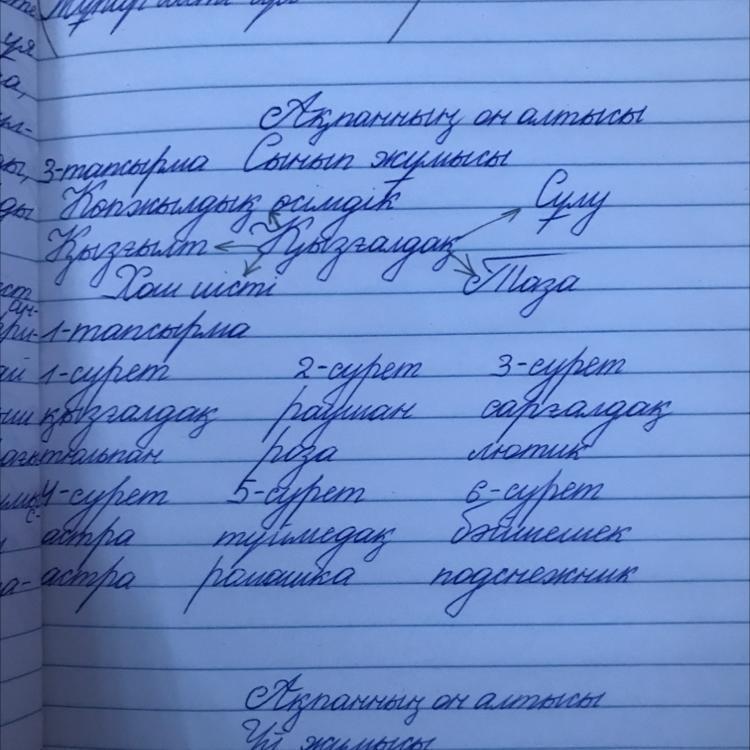 Ақпанның он алтысы
3-тапсырма Сынып жұмысы
Көпжылдық өсімдік Сұлу
Қызғылт Қызғалдақ
Хош иісті Таза
1-тапсырма
1-сурет 2-сурет 3-сурет
қызғалдақ раушан сарғалдақ
тюльпан роза лютик
4-сурет 5-сурет 6-сурет
астра түймедақ бәйшешек
астра ромашка подснежник
Ақпанның он алтысы
Үй жұмысы